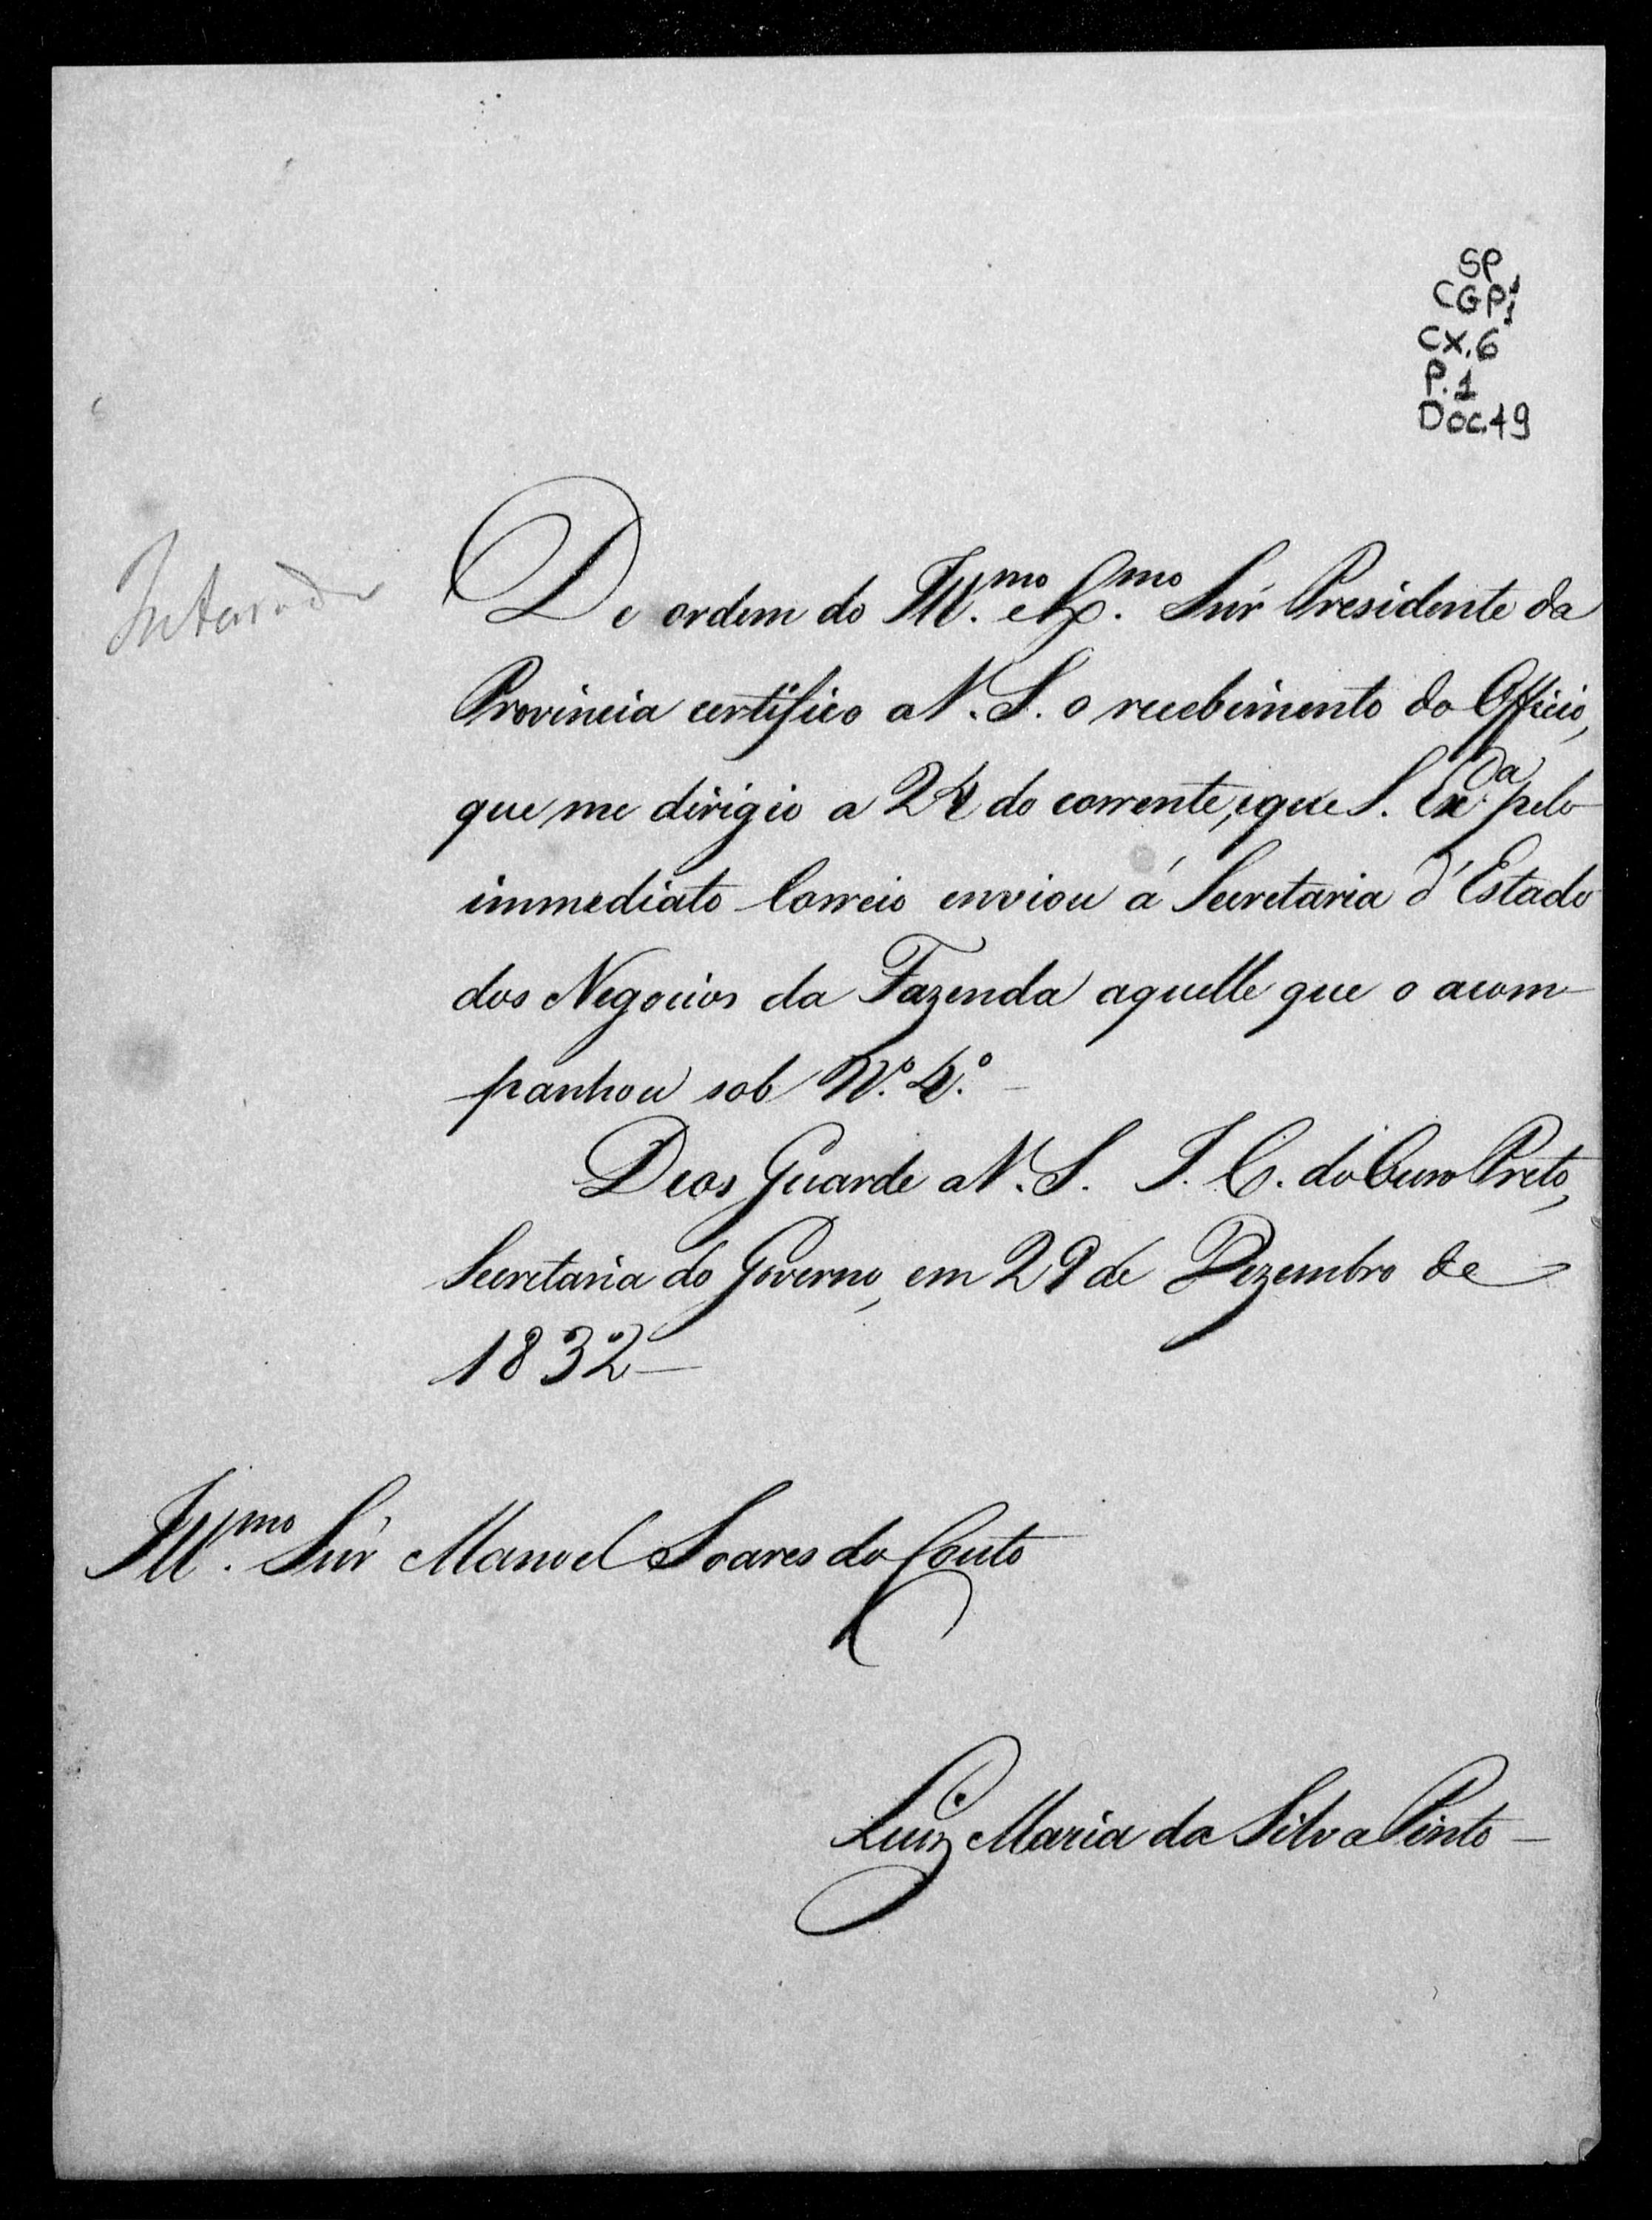 SP
CGP1
CX.6
P.1
Doc.19
Inteirado
De ordem do Ill.mo e Ex.mo Snr Presidente da
Provincia certifico a V. S. o recebimento do Officio,
que me dirigio a 24 do corrente, e que S. Ex.a pelo
immediato Correio enviou á Secretaria d'Estado
dos Negocios da Fazenda aquelle que o acom-
panhou sob N.º 4.º
Deos Guarde a V. S. I. C. do Ouro Preto,
Secretaria do Governo, em 29 de Dezembro de
1832
Ill.mo Snr Manoel Soares do Couto
Luiz Maria da Silva Pinto